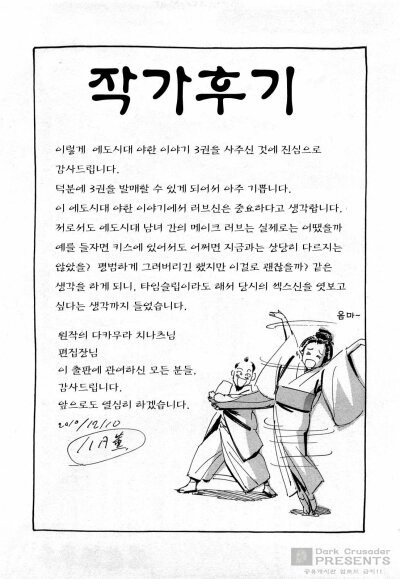 작가후기
이렇게 에도시대 야한 이야기 3권을 사주신 것에 진심으로
감사드립니다.
덕분에 3권을 발매할 수 있게 되어서 아주 기쁩니다.
이 에도시대 야한 이야기에서 러브신은 중요하다고 생각합니다.
저로서도 에도시대 남녀 간의 메이크 러브는 실제로는 어땠을까
예를 들자면 키스에 있어서도 어쩌면 지금과는 상당히 다르지는
않았을까? 평범하게 그려버리긴 했지만 이걸로 괜찮을까? 같은
생각을 하게 되니, 타임슬립이라도 해서 당시의 섹스신을 엿보고
싶다는 생각까지 들었습니다.
옴마~
원작의 다카무라 치나츠님
편집장님
이 출판에 관여하신 모든 분들.
감사드립니다.
앞으로도 열심히 하겠습니다.
2010/12/10
Dark Crusader
PRESENTS
공유게시판 업로드 금지!!